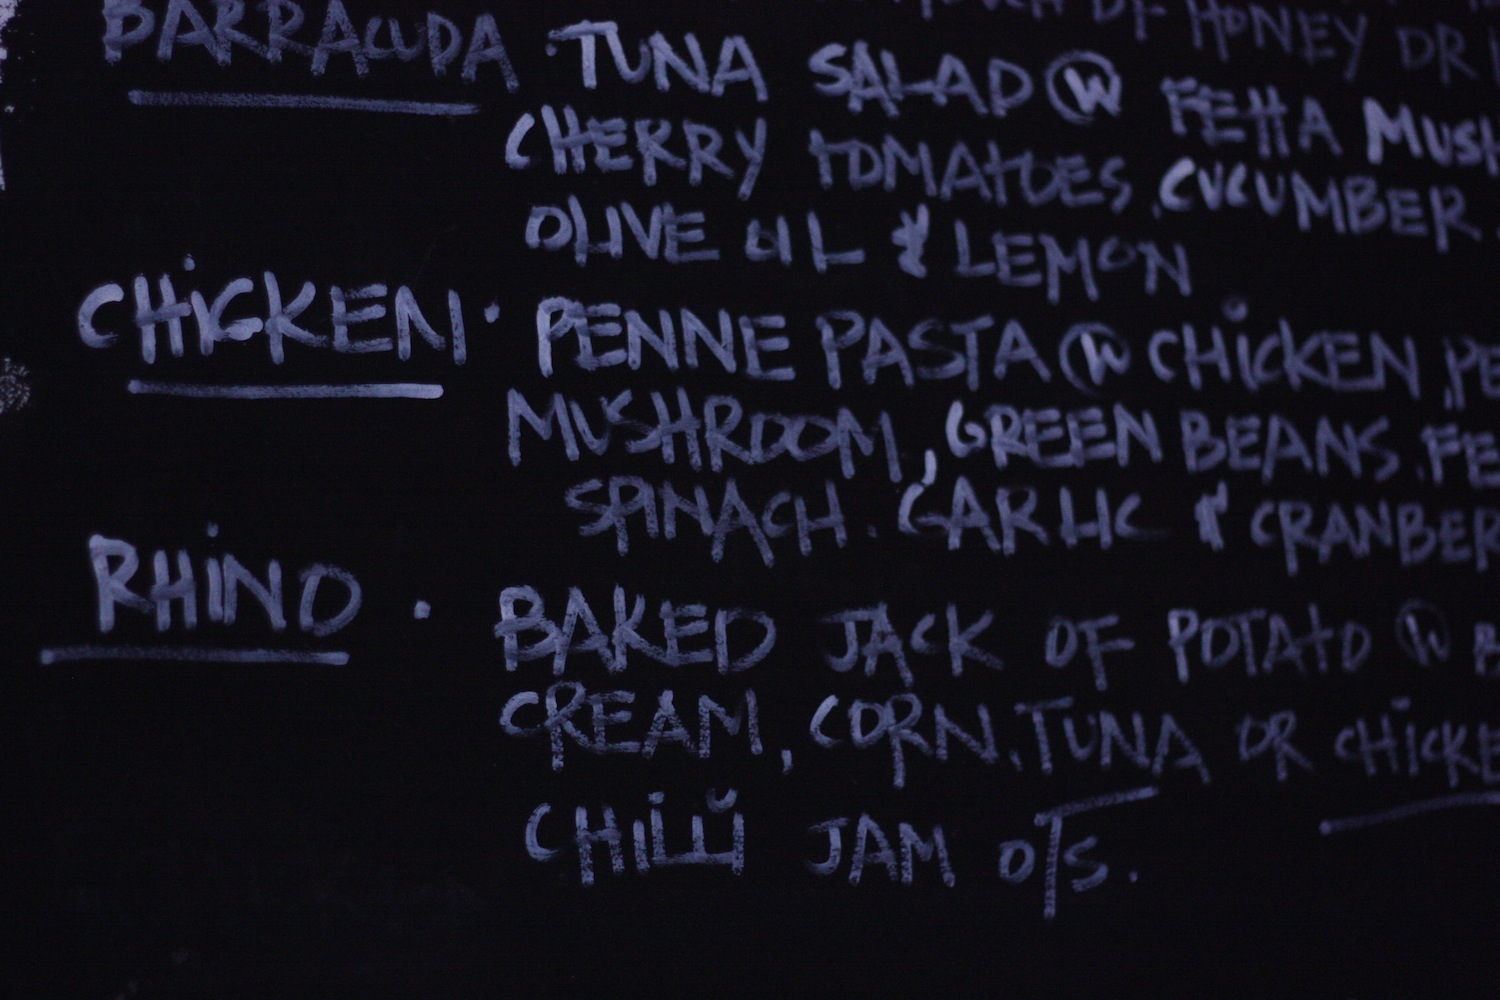 OF HONEY OR
BARRACUDA · TUNA SALAD @ W FETTA MUSH
CHERRY TOMATOES, CUCUMBER.
OLIVE OIL & LEMON
CHiCKEN · PENNE PASTA W CHiCKEN PE
MUSHROOM, GREEN BEANS. FE
SPINACH. GARLIC & CRANBER
RHiNO · BAKED JACK OF POTATO W B
CREAM, CORN, TUNA OR CHiCKE
CHiLLi JAM O/TS.